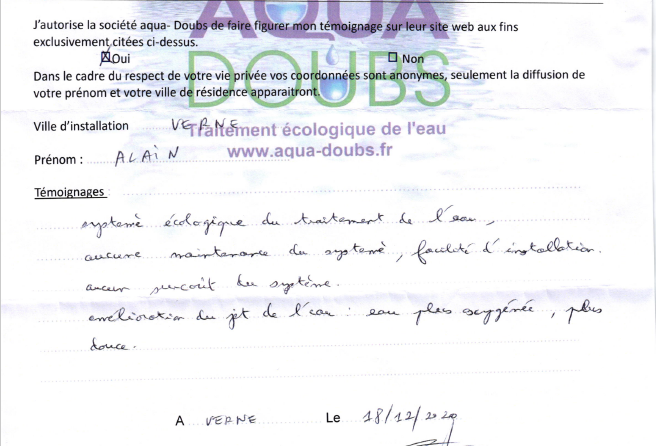 AQUA
J'autorise la société aqua- Doubs de faire figurer mon témoignage sur leur site web aux fins
exclusivement citées ci-dessus.
☒Oui ☐ Non
DOUBS
Dans le cadre du respect de votre vie privée vos coordonnées sont anonymes, seulement la diffusion de
votre prénom et votre ville de résidence apparaitront.
Ville d'installation VERNE
Traitement écologique de l'eau
Prénom : ALAiN
www.aqua-doubs.fr
Témoignages :
systemè écologique du traitement de l'eau,
aucune maintenance du systemè, facilité d'installation.
aucun surcoût du système.
amélioration du jet de l'eau : eau plus oxygénée, plus
douce.
A VERNE Le 18/12/2020